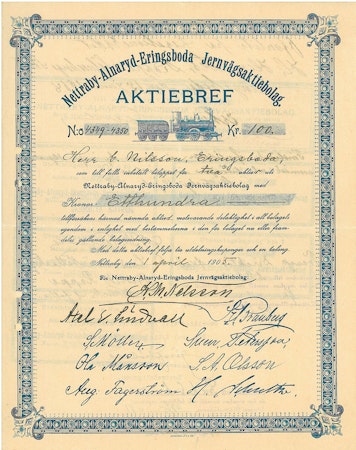 Nettraby-Alnaryd-Eringsboda Jernvägsaktiebolag.
AKTIEBREF
N:o 4349-4350 Kr. 100.
Herr C. Nilsson, Eringsboda,
som till fullo inbetalt beloppet för två aktier uti
Nettraby-Alnaryd-Eringsboda Jernvägsaktiebolag med
Kronor Etthundra
tillförsäkras härmed nämnda aktier, motsvarande delaktighet i allt bolagets
egendom i enlighet med bestämmelserna i den för bolaget nu eller fram-
deles gällande bolagsordning.
Med detta aktiebref följa tio utdelningskuponger och en talong.
Nettraby den 1 april 1905.
För Nettraby-Alnaryd-Eringsboda Jernvägsaktiebolag:
Nelsson
Axel Lindvall
S. Möller Sven Petersson
Ola Månsson S. A. Olsson
Aug. Fagerström